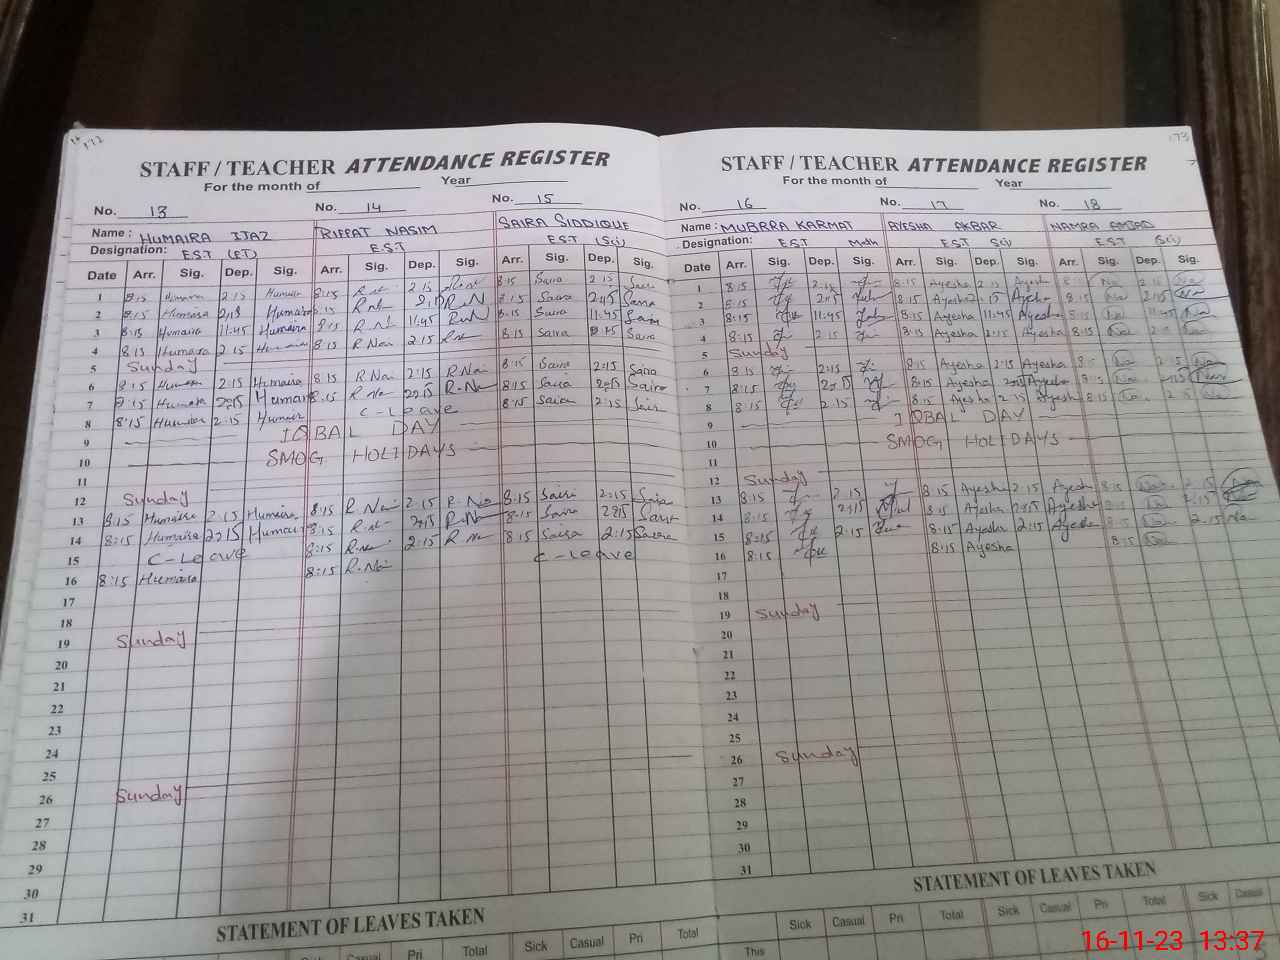 172
STAFF / TEACHER ATTENDANCE REGISTER
For the month of Year
No. 13 No. 14 No. 15
Name: HUMAIRA IJAZ RIFFAT NASIM SAIRA SIDDIQUE
Designation: EST (PT) EST EST (Sci)
Date Arr. Sig. Dep. Sig. Arr. Sig. Dep. Sig. Arr. Sig. Dep. Sig.
1 8:15 Humaira 2:15 Humaira 8:15 2:15 8:15 Saira 2:15 Saira
2 8:15 Humaira 2:15 Humaira 8:15 R.N 8:15 Saira 2:15 Saira
3 8:15 Humaira 11:45 Humaira 8:15 11:45 8:15 Saira 11:45
4 8:15 Humaira 2:15 Humaira 8:15 R.Nai 2:15 8:15 Saira 2:15 Saira
5 Sunday
6 8:15 Humaira 2:15 Humaira 8:15 R.Nai 2:15 R.Nai 8:15 Saira 2:15 Saira
7 8:15 Humaira 2:15 Humaira 8:15 2:15 8:15 Saira 2:15 Saira
8 8:15 Humaira 2:15 Humaira C-Leave 8:15 Saira 2:15 Saira
9 IQBAL DAY
10 SMOG HOLIDAYS
11
12 Sunday
13 8:15 Humaira 2:15 Humaira 8:15 R.Nai 2:15 R.Na 8:15 Saira 2:15 Saira
14 8:15 Humaira 2:15 Humaira 8:15 2:15 8:15 Saira 2:15 Saira
15 C-Leave 8:15 2:15 8:15 Saira 2:15 Saira
16 8:15 Humaira 8:15 R.Nai C-Leave
17
18
19 Sunday
20
21
22
23
24
25
26 Sunday
27
28
29
30
31
STATEMENT OF LEAVES TAKEN
Sick Casual Pri Total Sick Casual Pri Total
173
STAFF / TEACHER ATTENDANCE REGISTER
For the month of Year
No. 16 No. 17 No. 18
Name: MUBRRA KARMAT AYESHA AKBAR NAMRA AMJAD
Designation: EST Math EST Sci EST (Sci)
Date Arr. Sig. Dep. Sig. Arr. Sig. Dep. Sig. Arr. Sig. Dep. Sig.
1 8:15 2:15 8:15 Ayesha 2:15 Ayesha 8:15 Na 2:15 Na
2 8:15 2:15 8:15 Ayesha 2:15 Ayesha 8:15 Na 2:15 Na
3 8:15 11:45 8:15 Ayesha 11:45 Ayesha 8:15 11:45 Na
4 8:15 2:15 8:15 Ayesha 2:15 Ayesha 8:15 Na 2:15
5 Sunday
6 8:15 2:15 8:15 Ayesha 2:15 Ayesha 8:15 Na 2:15
7 8:15 2:15 8:15 Ayesha 2:15 Ayesha 8:15 Na 2:15
8 8:15 2:15 8:15 Ayesha 2:15 Ayesha 8:15 2:15
9 IQBAL DAY
10 SMOG HOLIDAYS
11
12 Sunday
13 8:15 2:15 8:15 Ayesha 2:15 Ayesha 8:15 2:15
14 8:15 2:15 8:15 Ayesha 2:15 Ayesha 8:15 Na 2:15
15 8:15 2:15 8:15 Ayesha 2:15 Ayesha 8:15 2:15 Na
16 8:15 8:15 Ayesha 8:15
17
18
19 Sunday
20
21
22
23
24
25
26 Sunday
27
28
29
30
31
STATEMENT OF LEAVES TAKEN
Sick Casual Pri Total Sick Casual Pri Total Sick Casual
This
16-11-23 13:37